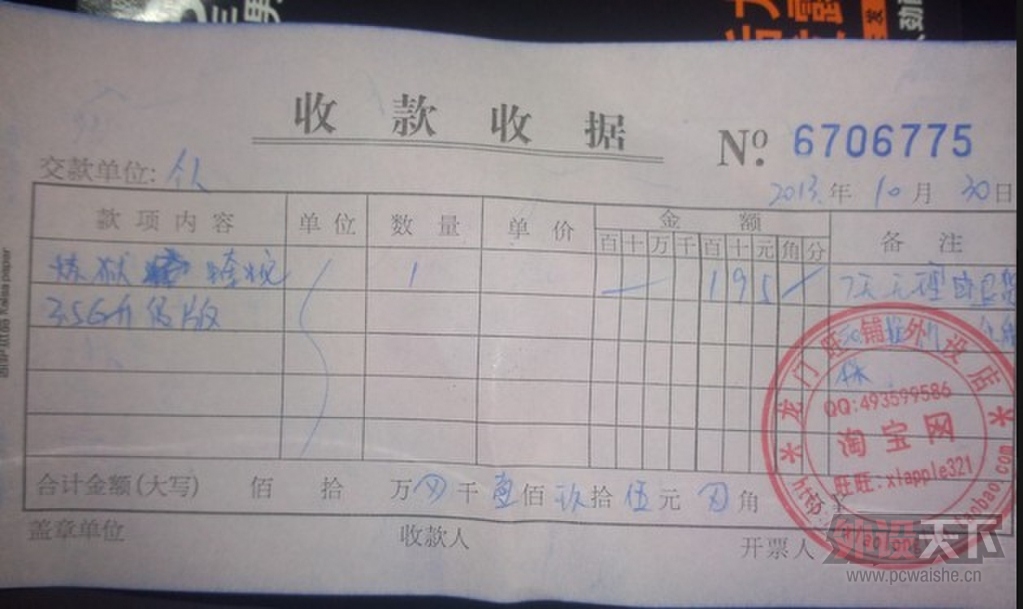 收款收据
No. 6706775
交款单位: 个人
2013年10月30日
款项内容 单位 数量 单价 金额 备注
百十万千百十元角分
炼狱蝰蛇 1 195 7天无理由退货
3.5G升级版
合计金额(大写) 佰 拾 万 千壹佰玖拾伍元 角 分¥
盖章单位 收款人 开票人
龙门旺铺外设店
QQ:493599586
淘宝网
旺旺:xiapple321
http:
taobao.com
外设天下
www.pcwaishe.cn